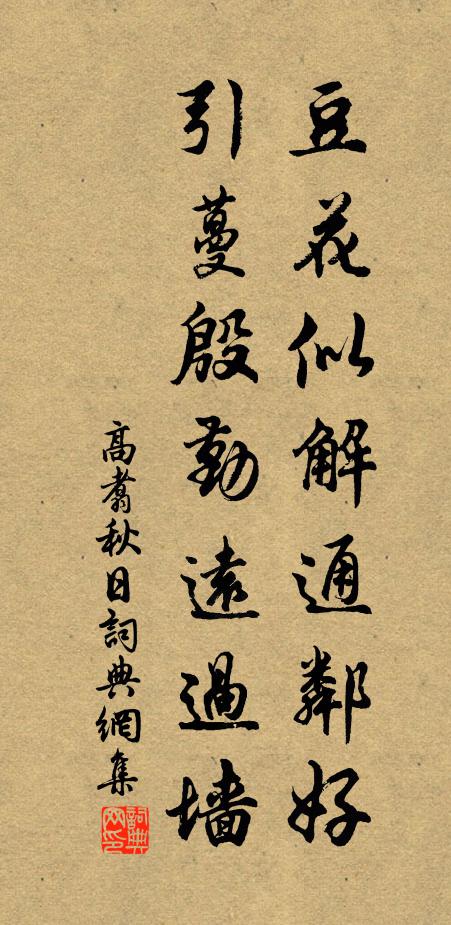 豆花似解通鄰好
引蔓殷勤遠過墻
高翥秋日詞典網集
詞典网印